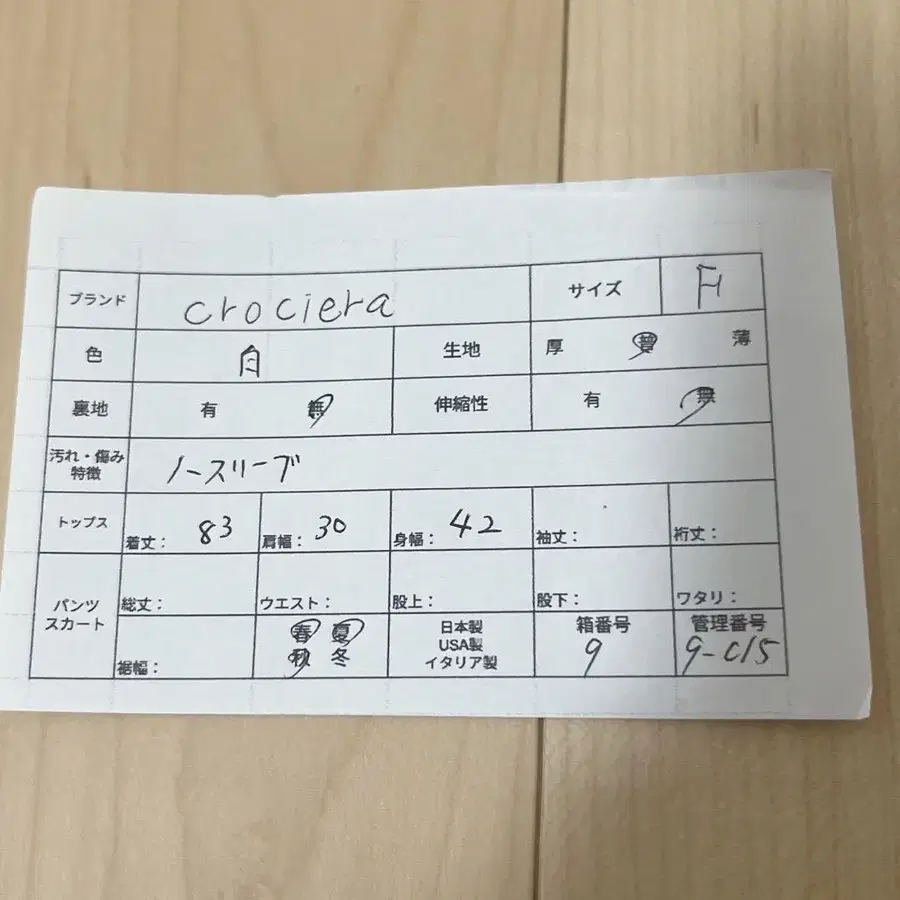 ブランド crociera サイズ F
色 白 生地 厚 普 薄
裏地 有 無 伸縮性 有 無
汚れ・傷み
特徴 ノースリーブ
トップス 着丈: 83 肩幅: 30 身幅: 42 袖丈: 裄丈:
パンツ
スカート 総丈: ウエスト: 股上: 股下: ワタリ:
裾幅: 春 夏
秋 冬
日本製
USA製
イタリア製
箱番号
9
管理番号
9-C15